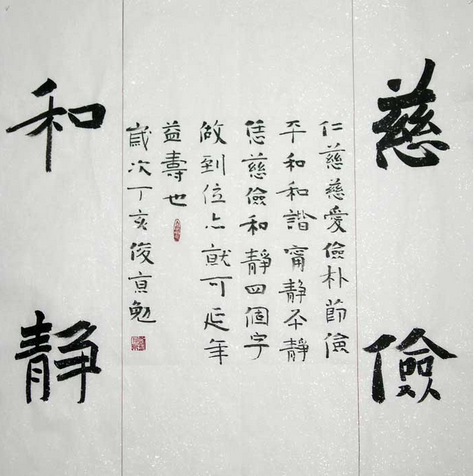 慈儉
仁慈慈愛儉朴節儉
平和和諧甯靜平靜
恁慈儉和靜四個字
做到位就可延年
益壽也
歲次丁亥俊勉
和靜